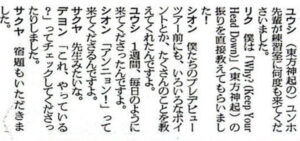 ユウシ （東方神起の）ユンホ
先輩が練習室に何度も来てくだ
さいました。
リク 僕は「Why? (Keep Your
Head Down)」（東方神起）の
振りを直接教えてもらいまし
た！
シオン 僕たちのプレデビュー
ツアー前にも、いろいろなポイ
ントとか、たくさんのことを教
えてくれたんですよ。
ユウシ 1週間、毎日のように
来てくださったんですよ。
シオン 「アンニョン！」って
来てくださるんですよ。
サクヤ 先生みたいな。
デヨン 「これ、やっている
？」ってチェックしてくださっ
たりしました。
サクヤ 宿題もいただきま